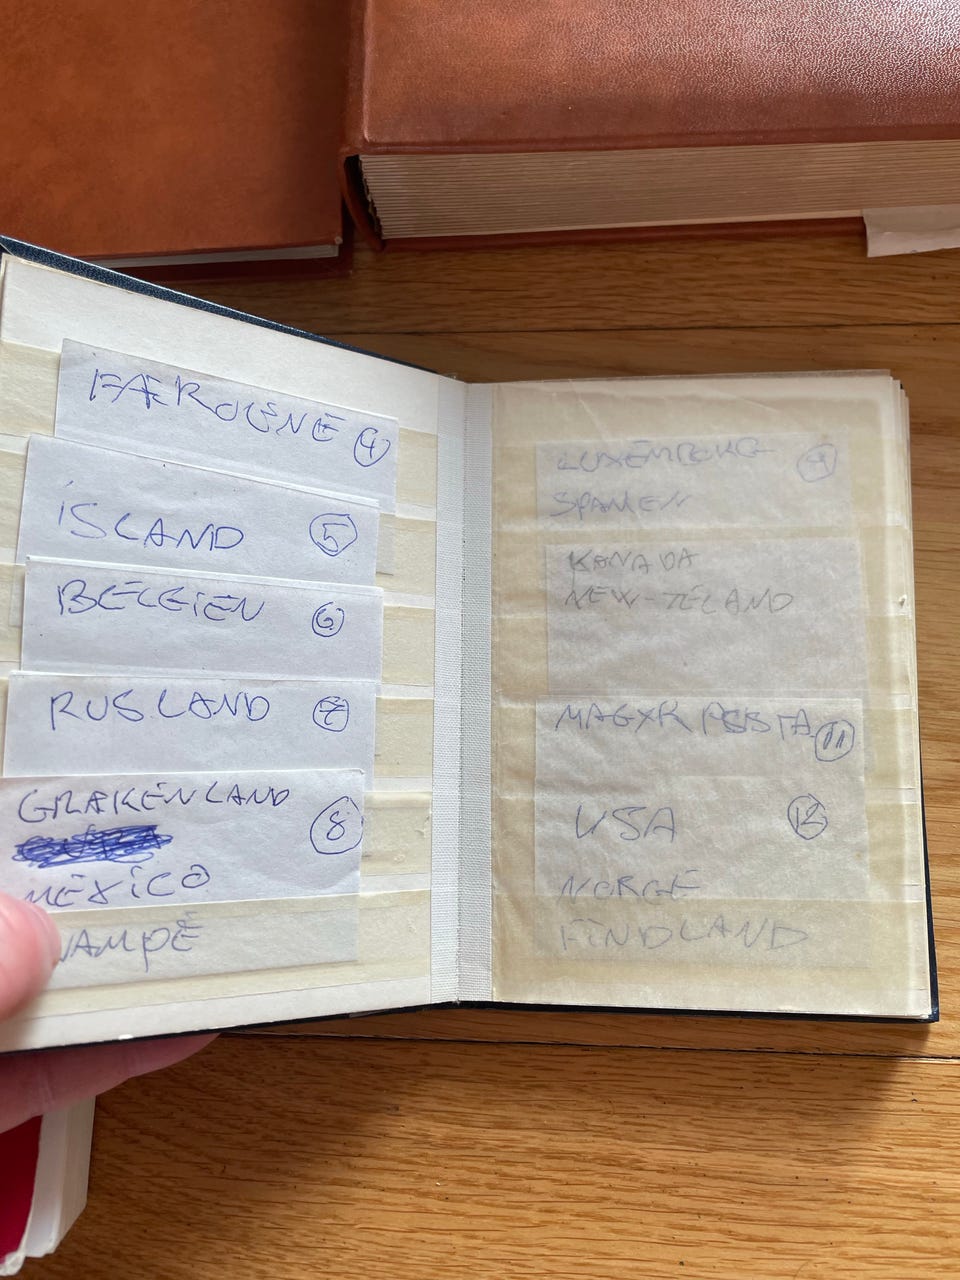 FÆROENE 4
ISLAND 5
BELGIEN 6
RUSLAND 7
GRÆKENLAND
8
MEXICO
LUXEMBURG 9
SPANIEN
KANADA
NEW-ZELAND
MAGYR POSTA 11
USA 12
NORGE
FINDLAND